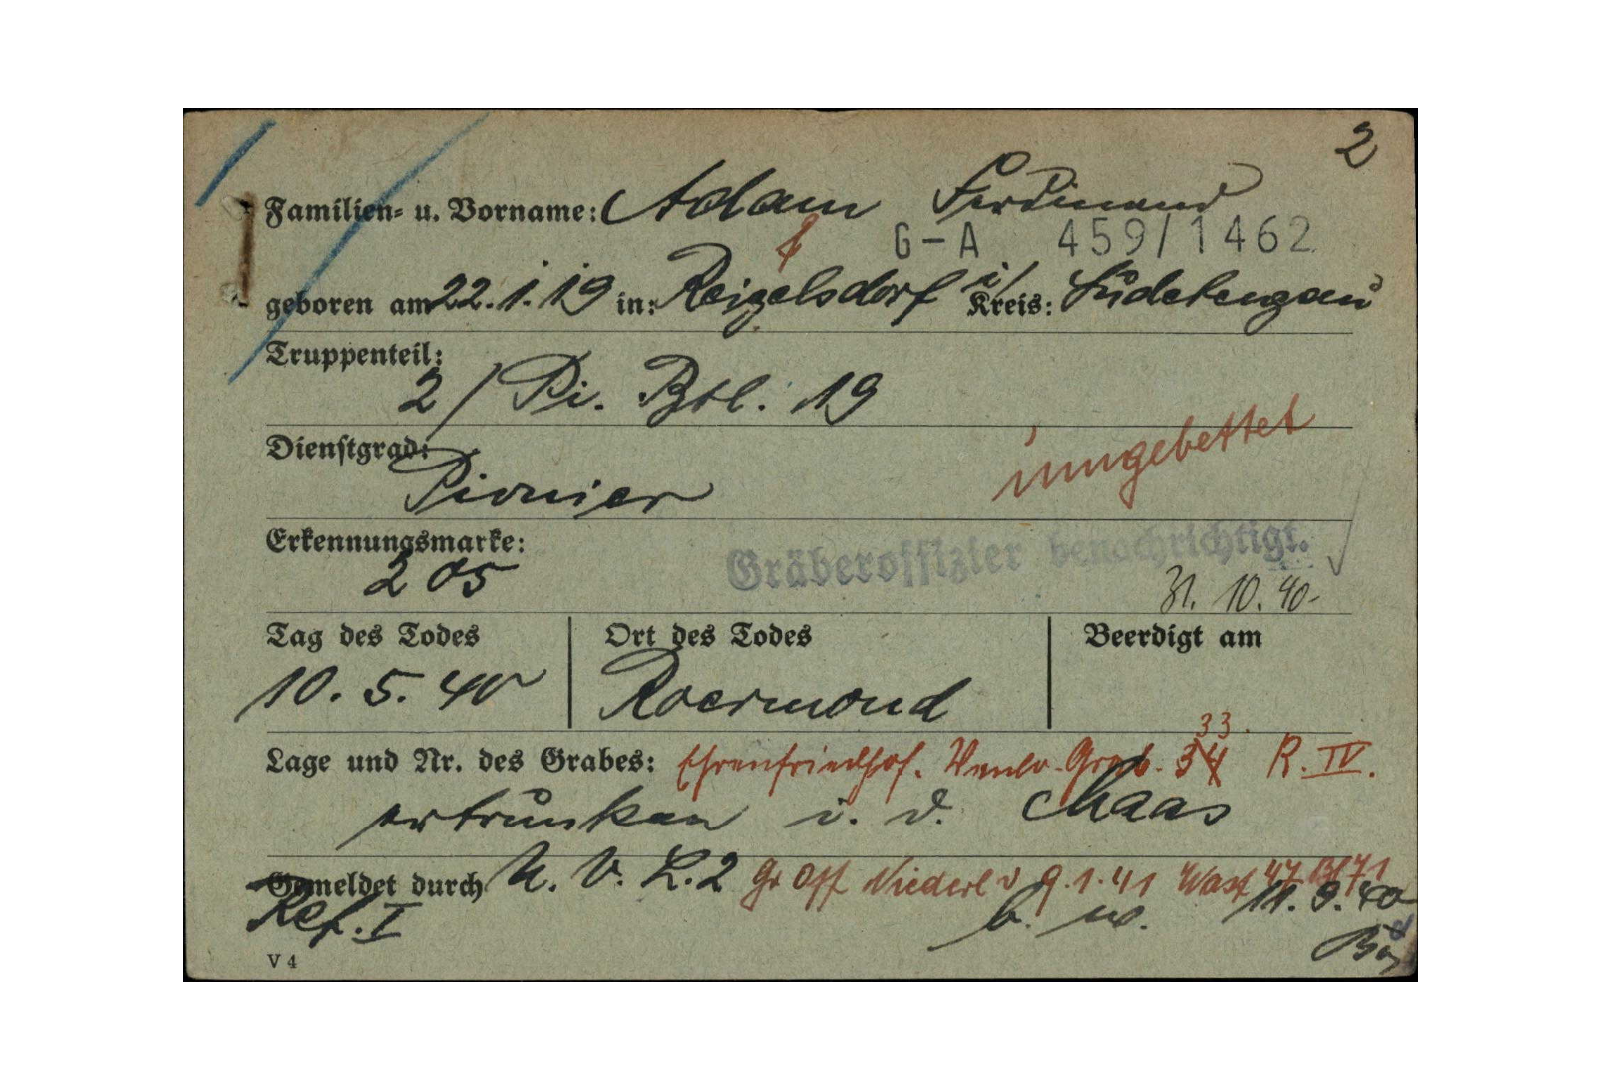 2
Familien- u. Vorname: Adam Ferdinand
G-A 459/1462
geboren am 22.1.19 in: Reigelsdorf i/ Kreis: Sudetengau
Truppenteil:
2/Pi. Btl. 19
Dienstgrad:
Pionier
umgebettet
Erkennungsmarke:
205
Gräberoffizier benachrichtigt.
31. 10. 40.
Tag des Todes Ort des Todes Beerdigt am
10. 5. 40 Roermond
33.
Lage und Nr. des Grabes: Ehrenfriedhof. Venlo. Grab. 34 R. IV.
ertrunken i. d. Maas
Gemeldet durch U. V. L. 2 Gr Off Niederl v 9.1.41 Wast 47 Bl 71
Ref. I b. w. 11. 9. 40
V 4